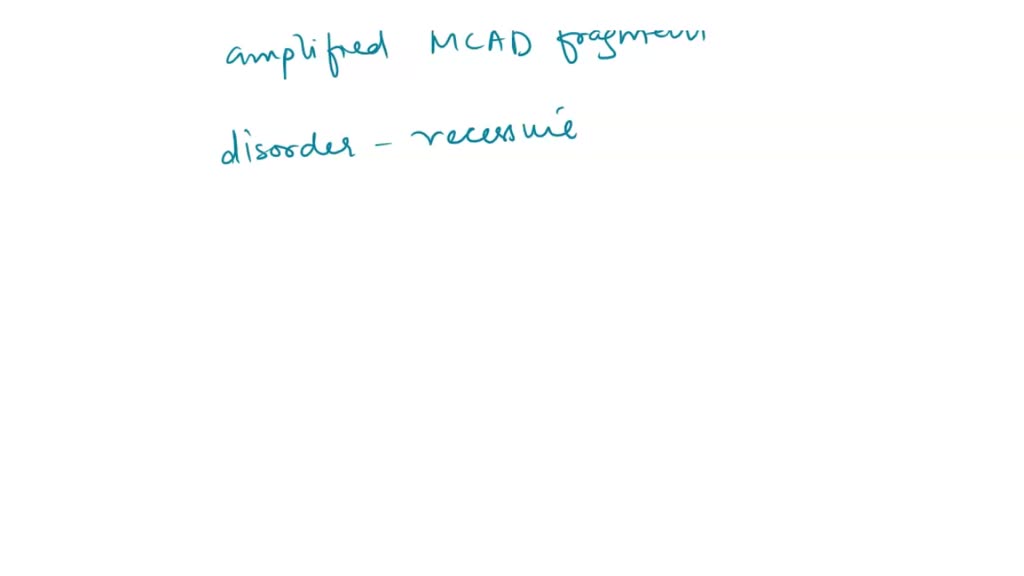 amplified MCAD fragment
disorder - recessive